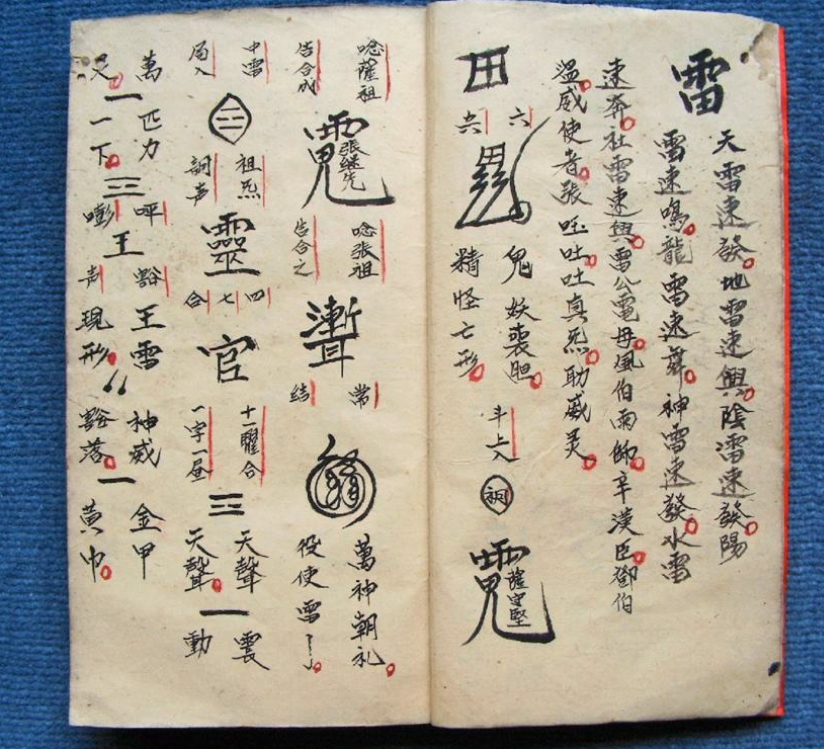 雷
天雷速發地雷速興陰雷速發陽
雷速鳴龍雷速昇神雷速發水雷
速奔社雷速興雷公電母風伯雨師辛漢臣鄧伯
溫威使者張
吐吐真炁助威灵
田
六
鬼妖喪胆
精怪亡形
斗上入
祠
薩守堅
唸薩祖
告合成
張継先
唸張祖
告合之
常
結
萬神朝礼
役使雷
中雷
局入
三
祖炁
詞声
靈
四七合
官
十一曜合
一字一昼
三
天聲
天聲
一
震
動
萬匹力
一
一下
三
呯
嘭
王
豁
声
王雷
現形
神威
豁落
一
金甲
黄巾